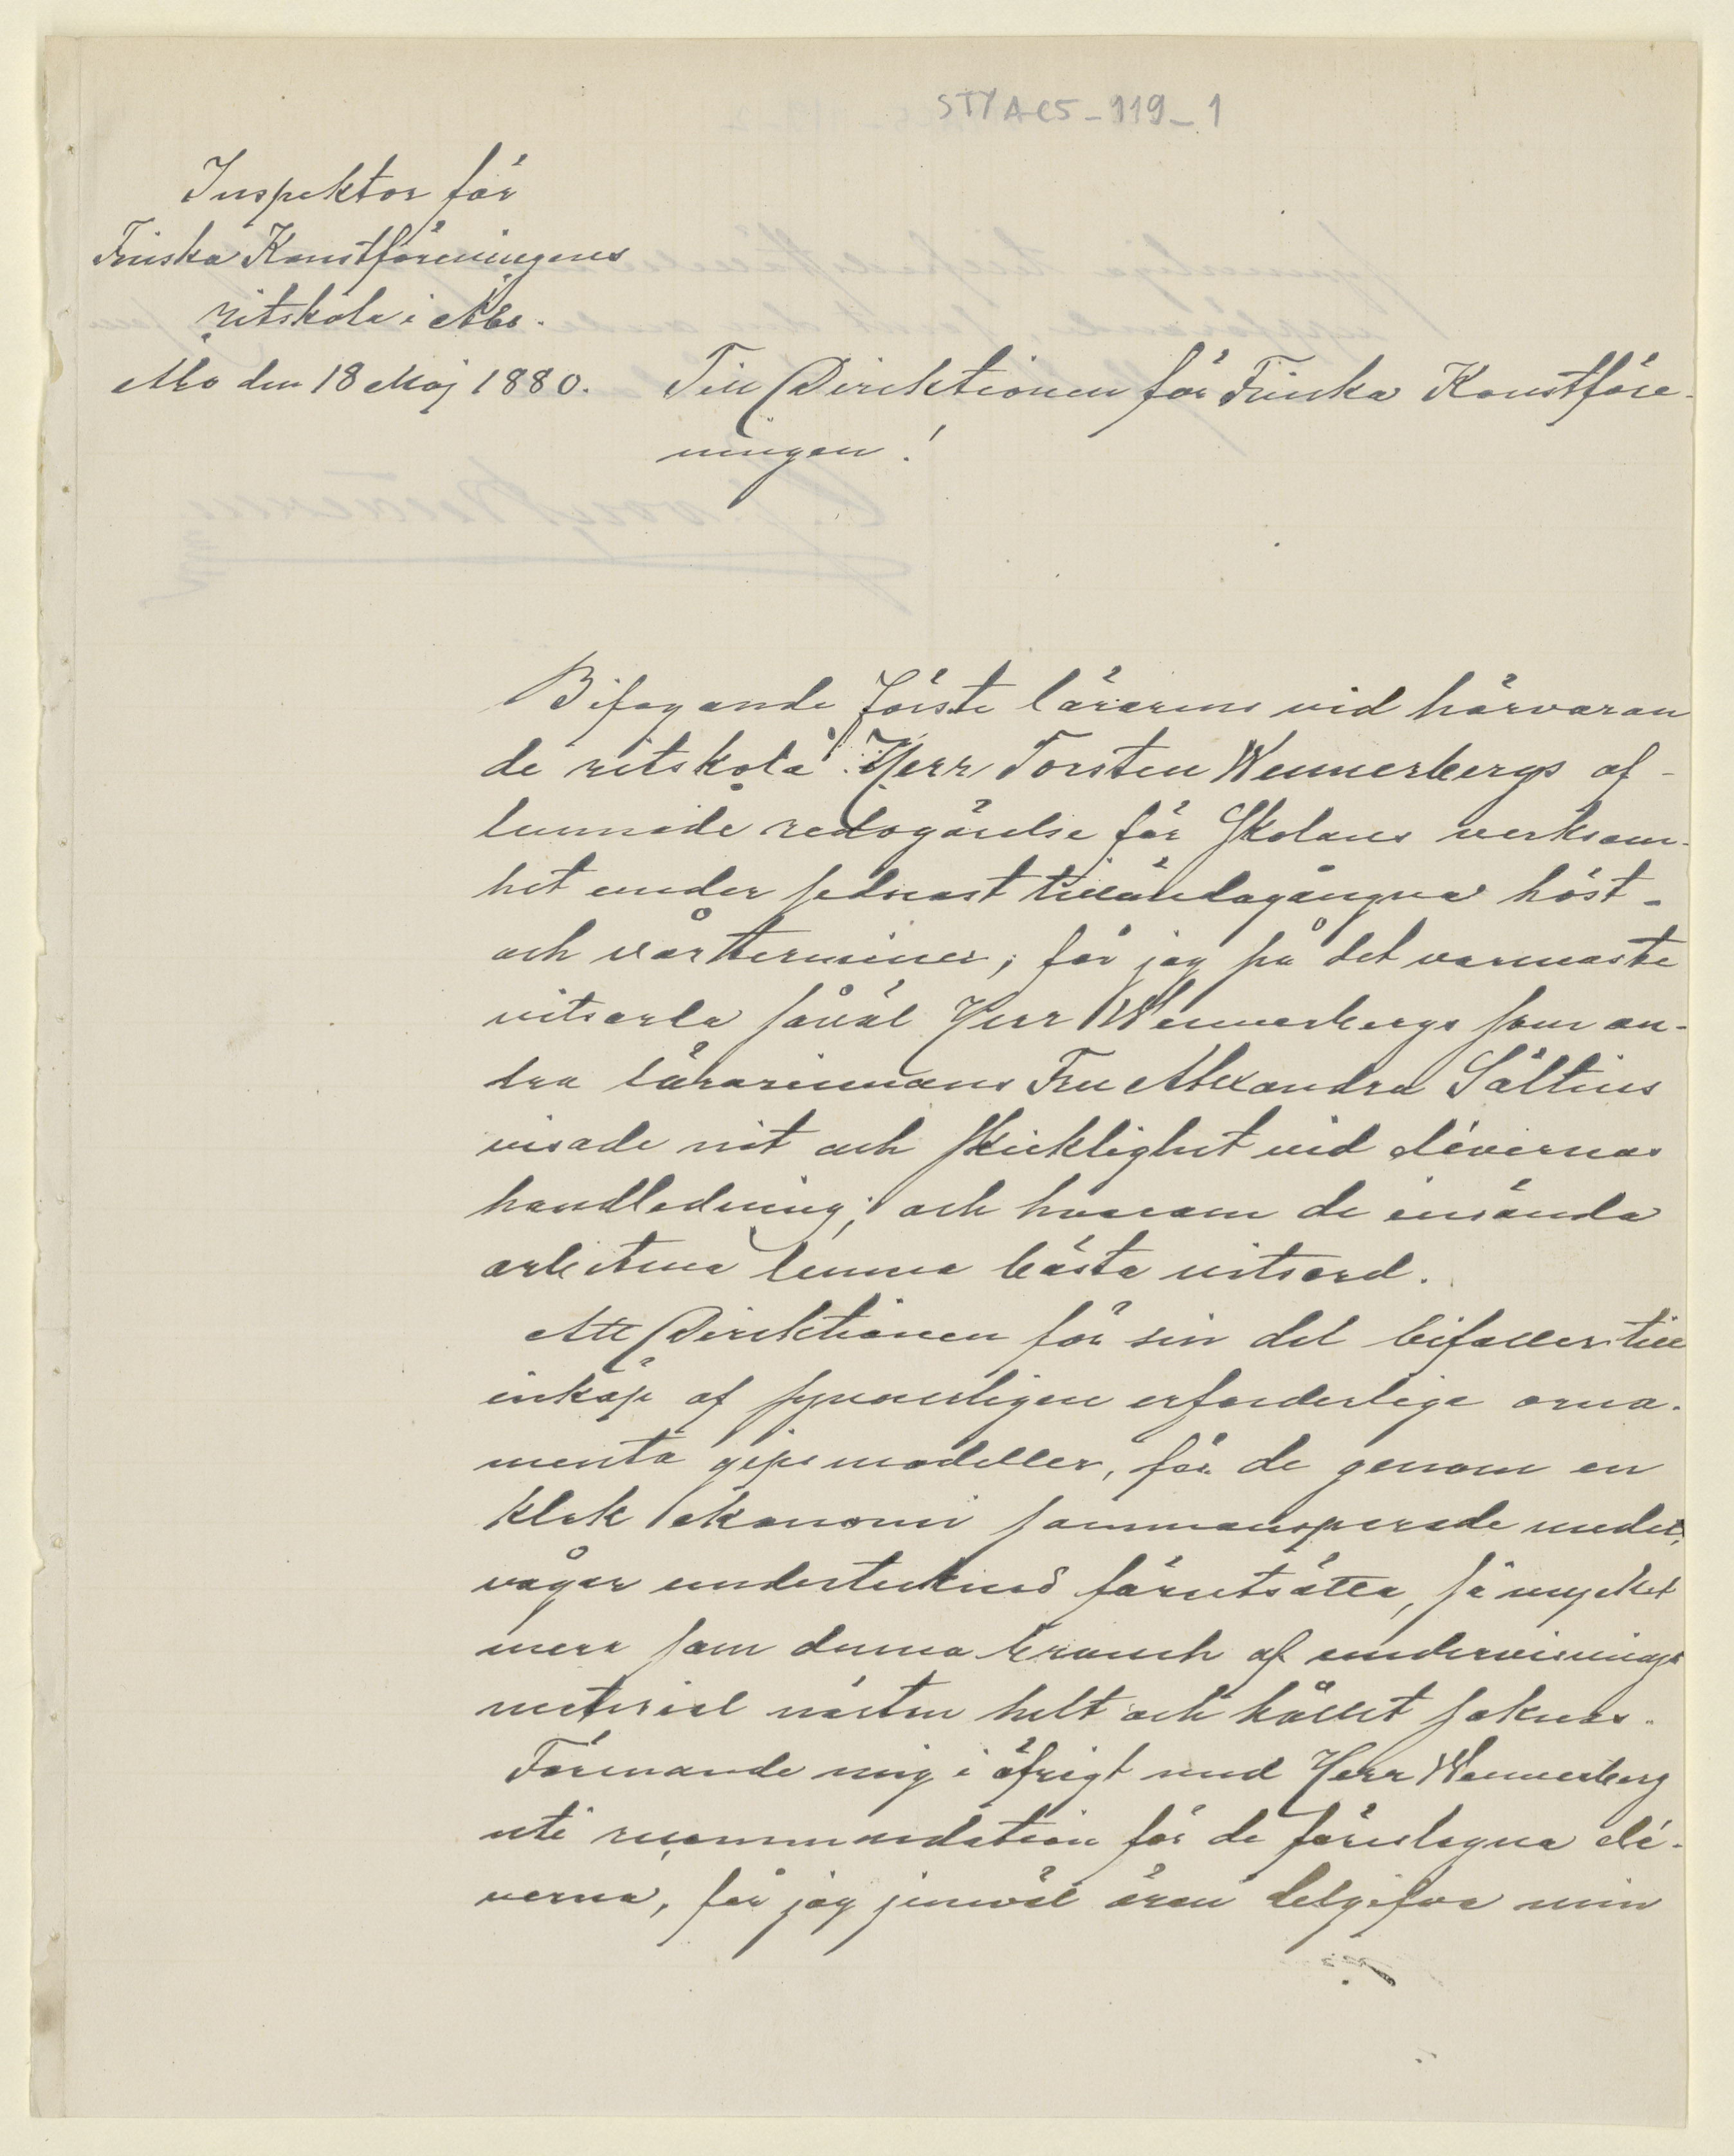 STYA C5_119_1
Inspektor för
Finska Konstföreningens
ritskola i Åbo.
Åbo den 18 Maj 1880.
Till Direktionen för Finska Konstföre-
ningen!
Bifogande förste lärarens vid härvaran
de ritskola Herr Torsten Wennerbergs af-
lemnade redogörelse för Skolans verksam-
het under sednast tilländagångna höst-
och vårterminer, får jag på det varmaste
vitsorda såväl Herr Wennerbergs som an-
dra lärarinnans Fru Alexandra Såltins
visade nit och skicklighet vid elévernas
handledning; och hvarom de insända
arbetena lemna bästa vitsord.
Att Direktionen för sin del bifaller till
inköp af synnerligen erforderliga orna-
ments gipsmodeller, för de genom en
klok ekonomi sammansparade medel,
vågar undertecknad förutsätta, så mycket
mera som denna branch af undervisnings
material nästan helt och hållet saknas.
Förenande mig i öfrigt med Herr Wennerberg
uti recommendation för de föreslagna elé-
verna, får jag jemväl äran delgifva min